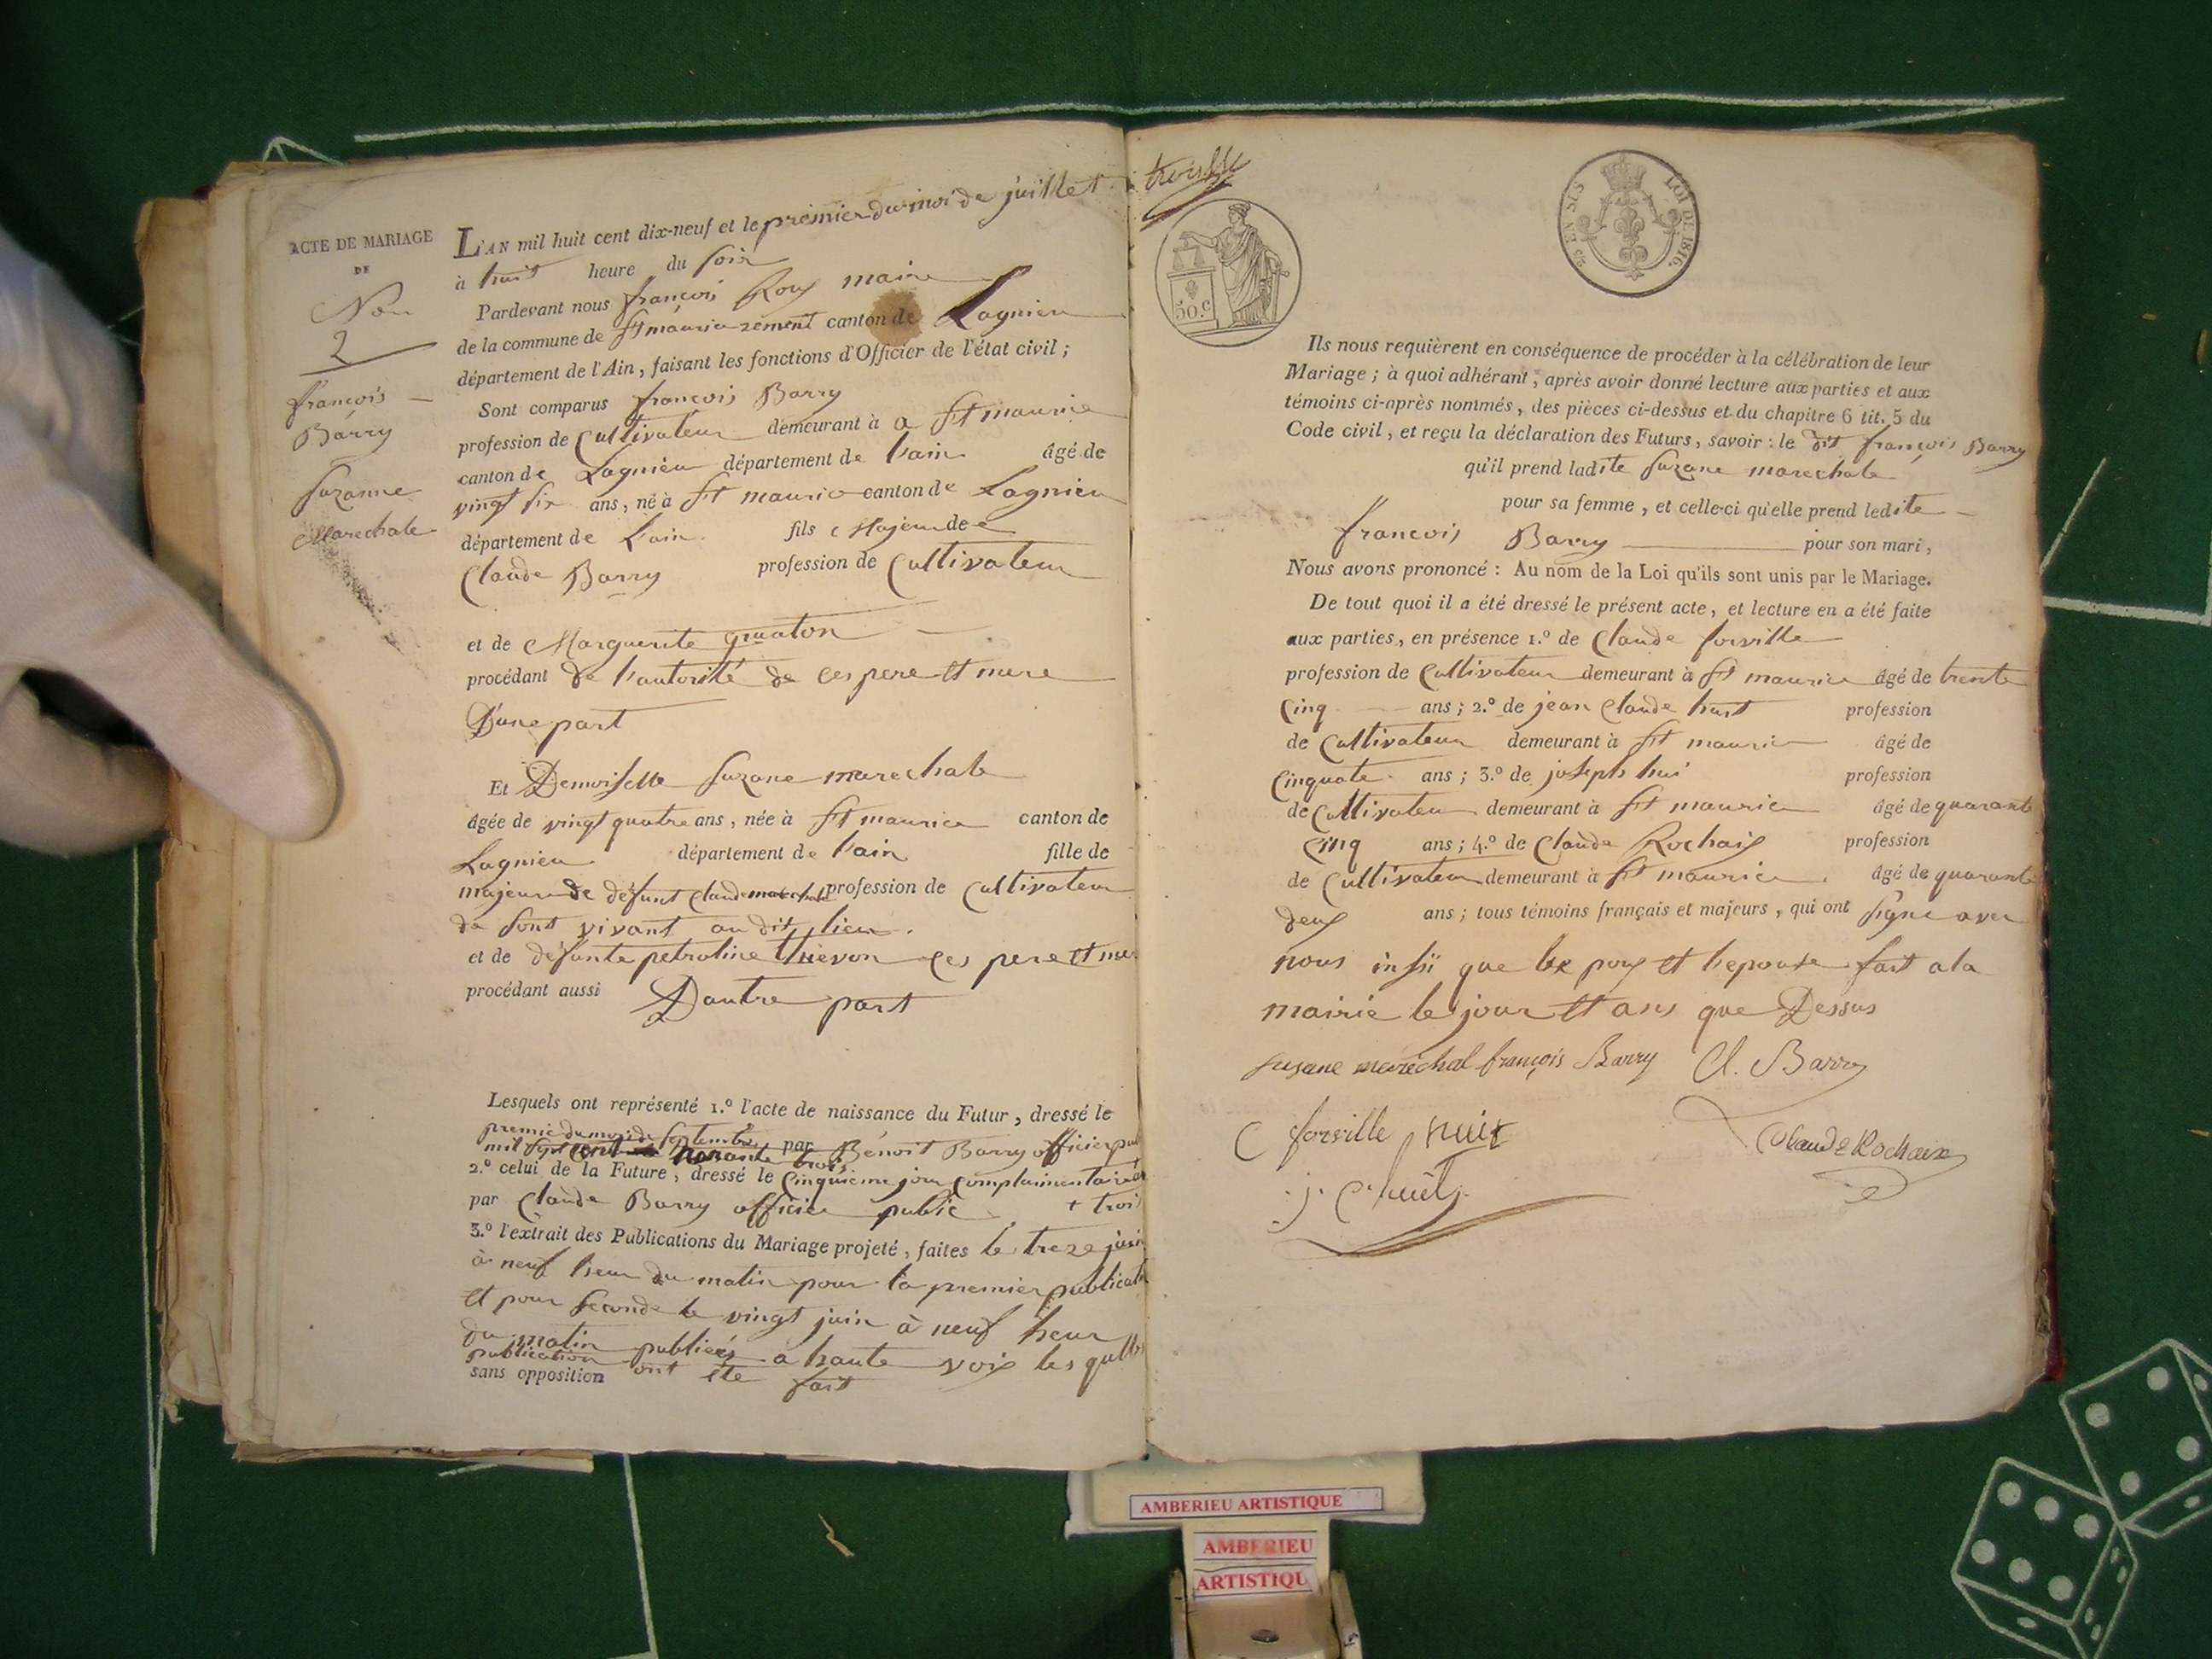 ACTE DE MARIAGE
DE
No
2
françois
Barry
Suzanne
Marechale
L'AN mil huit cent dix-neuf et le premier du moi de juillet
à huit heure du soir
Pardevant nous françois Roux maire
de la commune de St maurice rement canton de Lagnieu
département de l'Ain, faisant les fonctions d'Officier de l'état civil;
Sont comparus françois Barry
profession de Cultivateur demeurant à a St maurice
canton de Lagnieu département de l'ain âgé de
vingt six ans, né à St maurice canton de Lagnieu
département de l'ain fils Majeur de
Claude Barry profession de Cultivateur
et de Marguerite
procédant de l'autorité de ces pere et mere
D'une part
Et Demoiselle Suzane marechale
âgée de vingt quatre ans, née à St maurice canton de
Lagnieu département de l'ain fille de
majeure de défunt Claude marechale profession de Cultivateur
de sont vivant au dit lieu
et de défunte petroline thievon ces pere et mere
procédant aussi D'autre part
Lesquels ont représenté 1.º l'acte de naissance du Futur, dressé le
premie du moi de septembre
mil sept cent nonante trois par Bénoit Barry officier pub
2.º celui de la Future, dressé le Cinquieme jour complaimentaire
par Claude Barry officier public + trois
3.º l'extrait des Publications du Mariage projeté, faites le treze juin
à neuf heur du matin pour la premier publicati
et pour seconde le vingt juin à neuf heur
du matin publiées a haute voix les quelles
publication ont été fait
sans opposition
50.c
25 EN SUS
LOI DE 1816.
Ils nous requièrent en conséquence de procéder à la célébration de leur
Mariage; à quoi adhérant, après avoir donné lecture aux parties et aux
témoins ci-après nommés, des pièces ci-dessus et du chapitre 6 tit. 5 du
Code civil, et reçu la déclaration des Futurs, savoir: le dit françois Barry
qu'il prend ladite Suzane marechale
pour sa femme, et celle-ci qu'elle prend ledite
francois Barry pour son mari,
Nous avons prononcé: Au nom de la Loi qu'ils sont unis par le Mariage.
De tout quoi il a été dressé le présent acte, et lecture en a été faite
aux parties, en présence 1.º de Claude forville
profession de Cultivateur demeurant à St maurice âgé de trente
Cinq ans; 2.º de jean Claude huit profession
de Cultivateur demeurant à St maurice âgé de
Cinquate ans; 3.º de joseph hui profession
de Cultivateur demeurant à St maurice âgé de quarante
Cinq ans; 4.º de Claude Rochaix profession
de Cultivateur demeurant à St maurice âgé de quarante
deux ans; tous témoins français et majeurs, qui ont signe avec
nous insii que lex poux et lepouse fait a la
mairie le jour et ans que Dessus
susane maréchal françois Barry Cl. Barry
C forville huit Claude Rochaix
j. C. huit
AMBERIEU ARTISTIQUE
AMBERIEU
ARTISTIQU